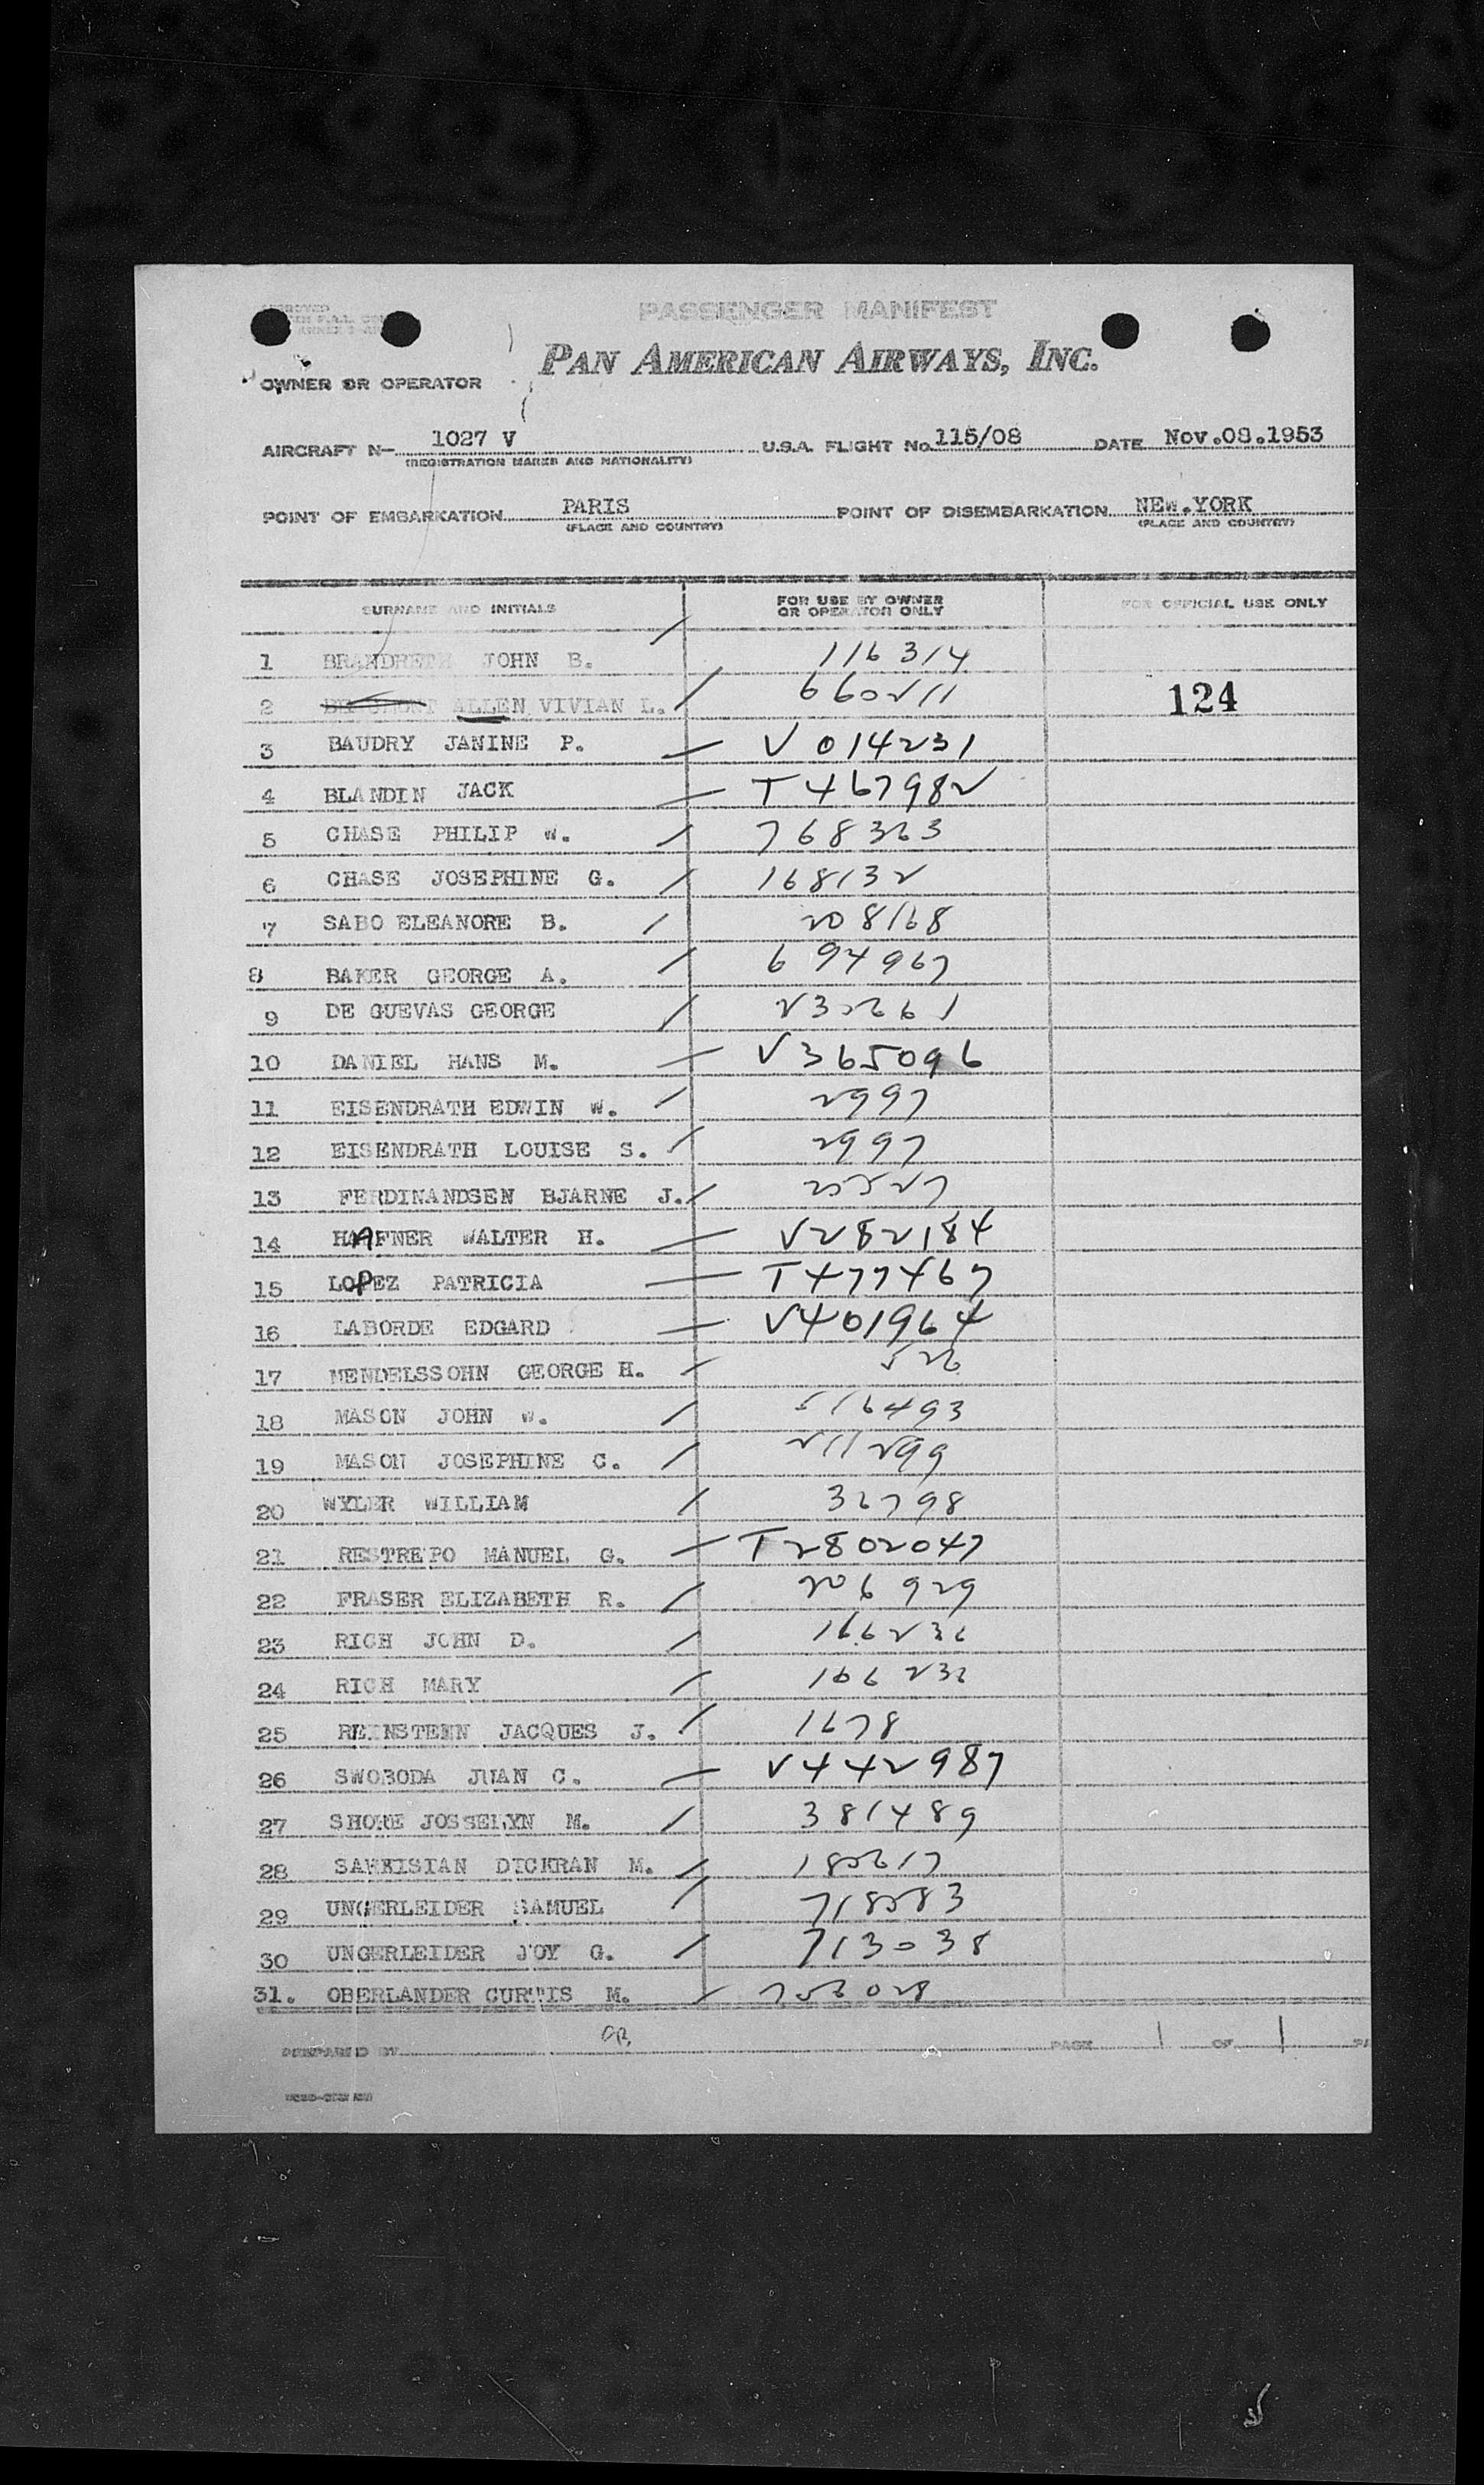 PASSENGER MANIFEST
PAN AMERICAN AIRWAYS, INC.
OWNER OR OPERATOR
AIRCRAFT N— 1027 V U.S.A. FLIGHT No. 115/08 DATE Nov.08.1953
(REGISTRATION MARKS AND NATIONALITY)
POINT OF EMBARKATION PARIS POINT OF DISEMBARKATION NEW.YORK
(PLACE AND COUNTRY) (PLACE AND COUNTRY)
SURNAME AND INITIALS FOR USE BY OWNER OR OPERATOR ONLY FOR OFFICIAL USE ONLY
1 BRANDRETH JOHN B. 116314
2 ALLEN VIVIAN L. 660211 124
3 BAUDRY JANINE P. V 014231
4 BLANDIN JACK T467982
5 CHASE PHILIP W. 768323
6 CHASE JOSEPHINE G. 168132
7 SABO ELEANORE B. 208168
8 BAKER GEORGE A. 694967
9 DE CUEVAS GEORGE
10 DANIEL HANS M. V365096
11 EISENDRATH EDWIN W. 2997
12 EISENDRATH LOUISE S. 2997
13 FERDINANDSEN BJARNE J.
14 HAFNER WALTER H. V282184
15 LOPEZ PATRICIA T477467
16 LABORDE EDGARD V401964
17 MENDELSSOHN GEORGE H. 526
18 MASON JOHN W. 516493
19 MASON JOSEPHINE C. 211299
20 WYLER WILLIAM 32798
21 RESTREPO MANUEL G. T2802047
22 FRASER ELIZABETH R. 206929
23 RICH JOHN D. 166232
24 RICH MARY 166232
25 REINSTEIN JACQUES J. 1678
26 SWOBODA JUAN C. V442987
27 SHORE JOSSELYN M. 381489
28 DICKRAN M.
29 UNGERLEIDER SAMUEL
30 UNGERLEIDER JOY G. 713038
31. OBERLANDER CURTIS M.
PREPARED BY PAGE 1 OF 1